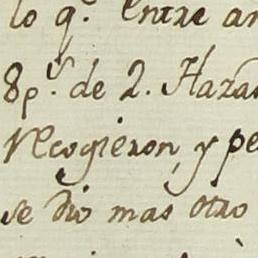 lo q.e Entre an
8 p.s de 2. Haza
recogieron, y pe
se dio mas otro